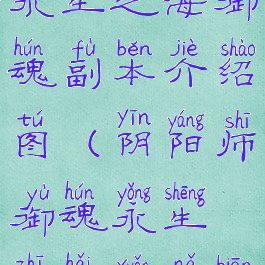 永生之海御
hún fù běn jiè shào
魂副本介绍
tú yīn yáng shī
图（阴阳师
yù hún yǒng shēng
御魂永生
zhī hǎi